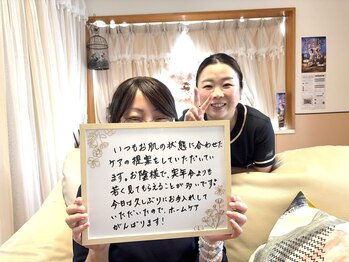 いつもお肌の状態に合わせた
ケアの提案をしていただいてい
ます。お陰様で、実年令よりも
若く見てもらえることが多いです。
今日は久しぶりにお手入れして
いただいたので、ホームケア
がんばります!